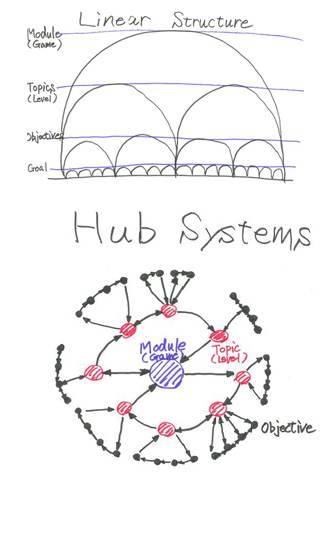 Linear Structure
Module
(Game)
Topics
(Level)
Objectives
Goal
Hub Systems
Module
(Game)
Topic
(Level)
Objective